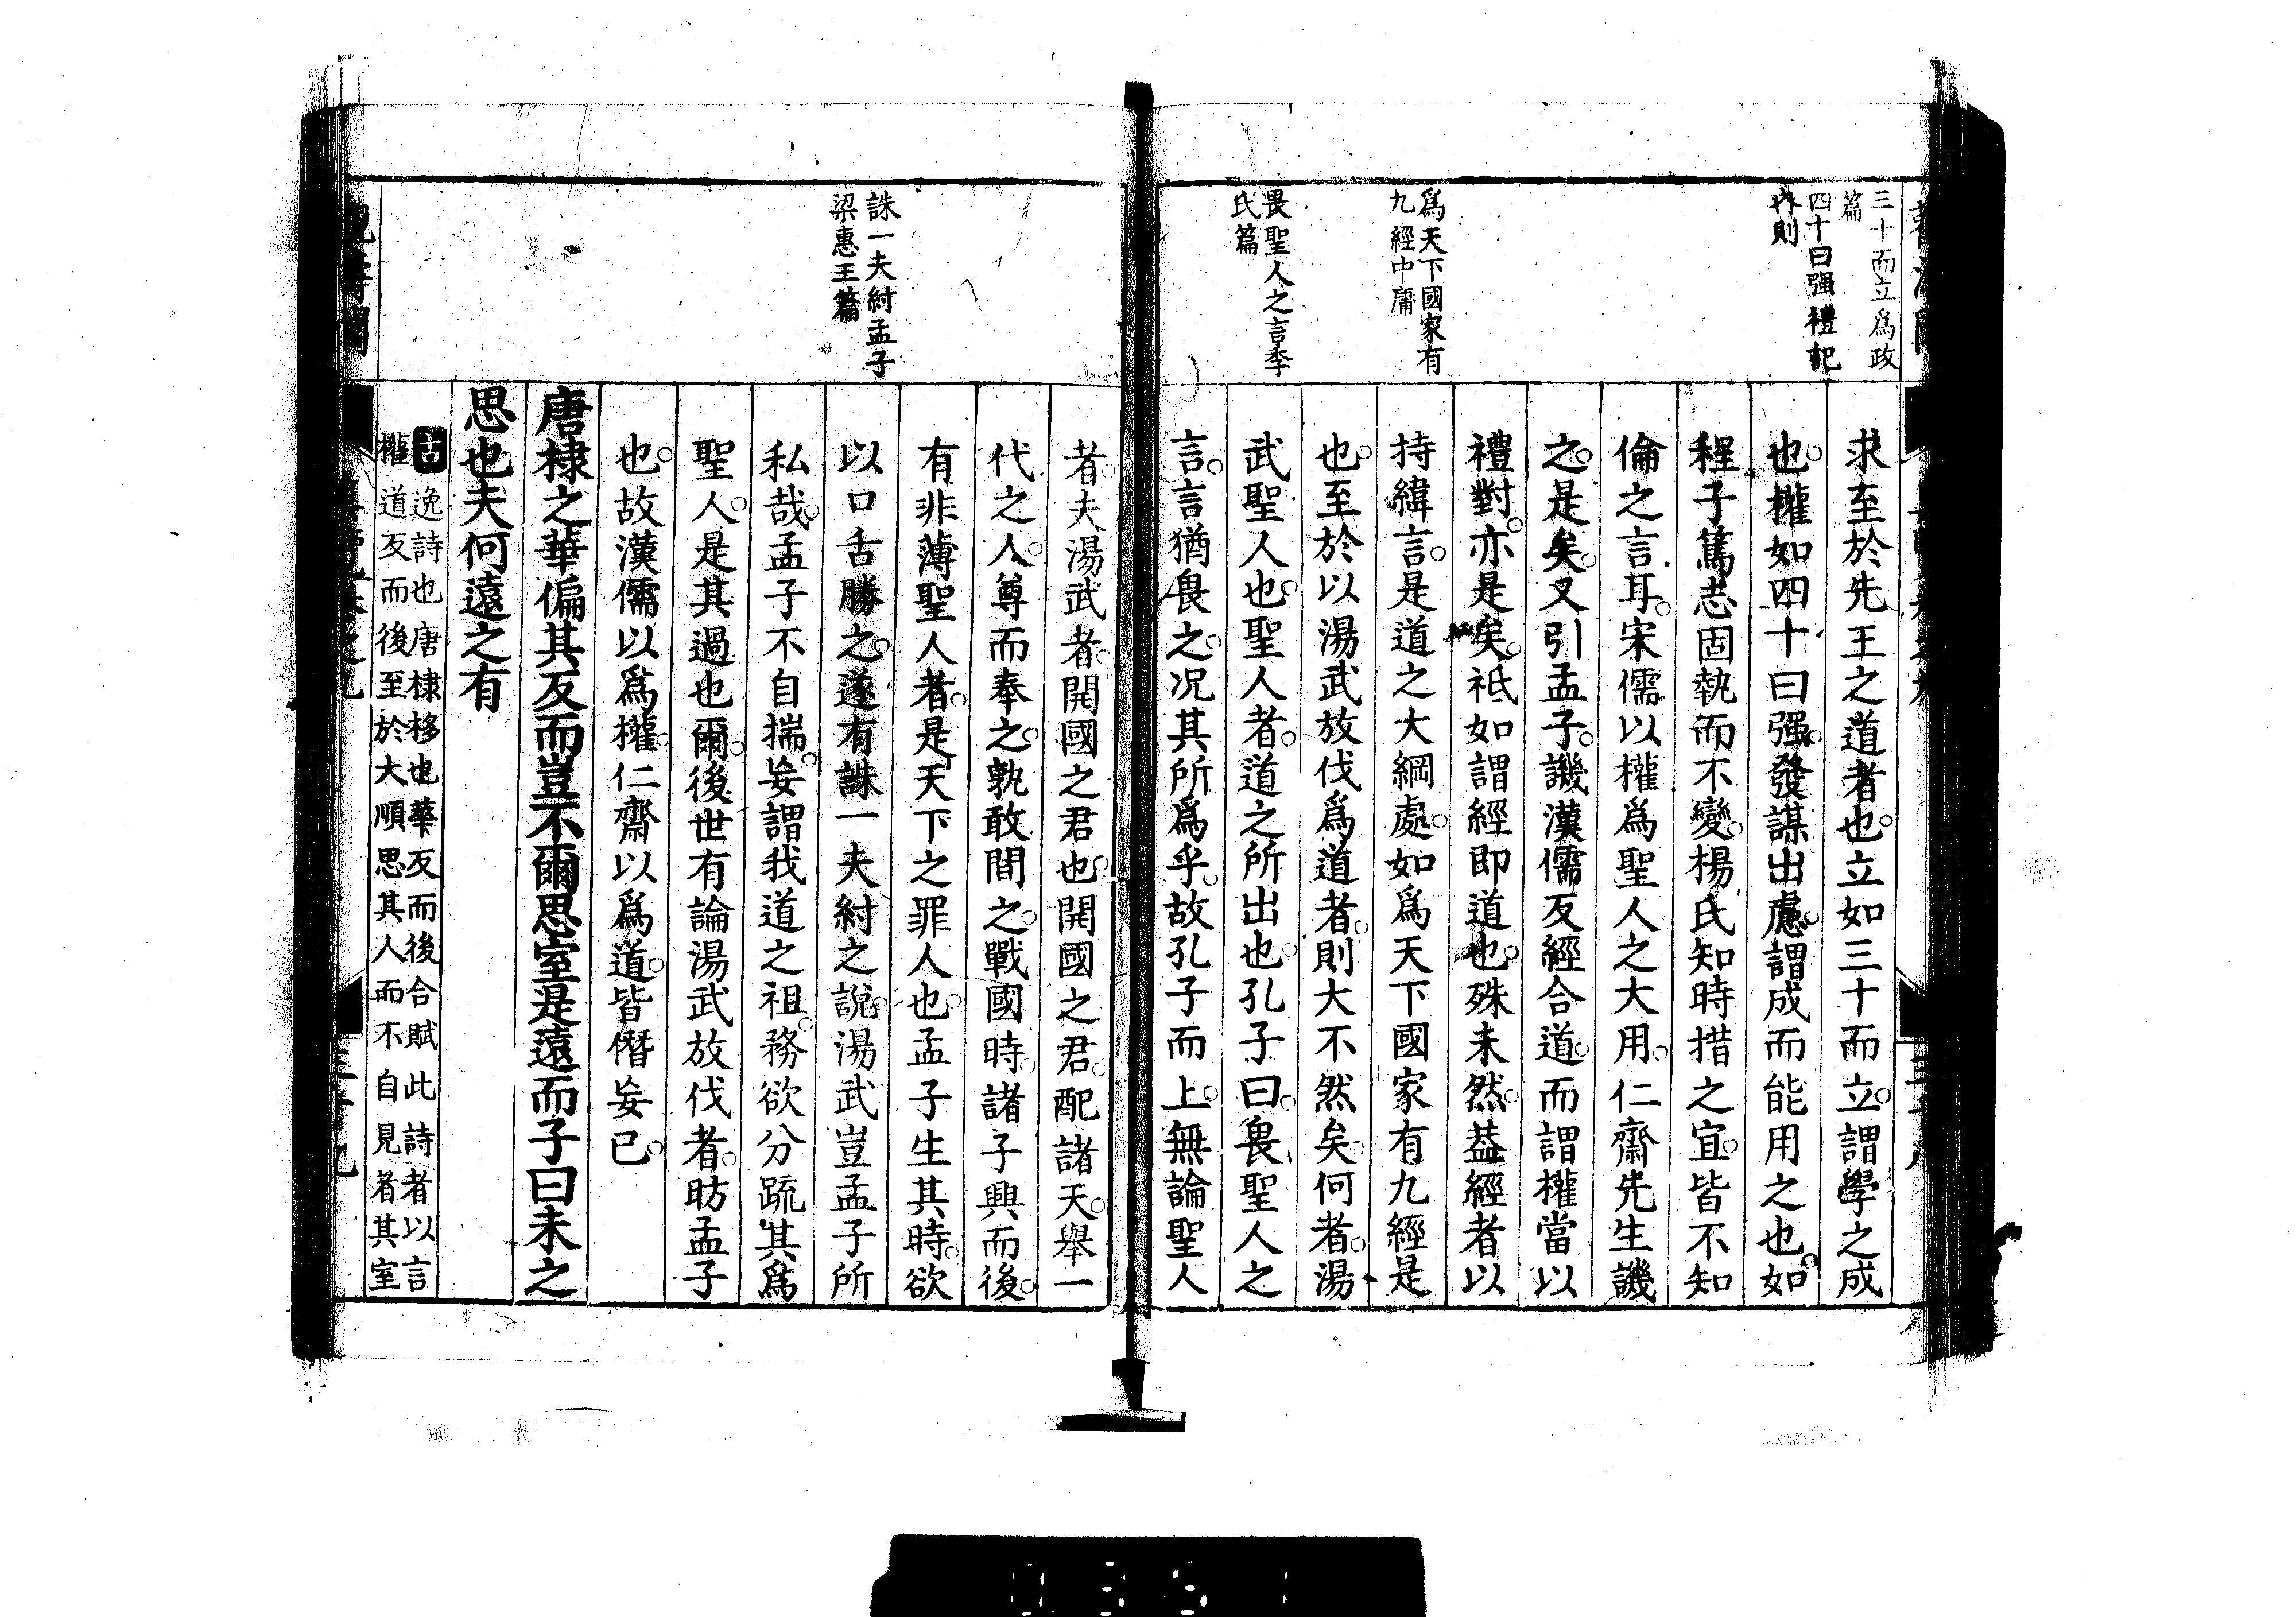 三十而立爲政
篇
四十曰强禮記
内則
爲天下國家有
九經中庸
畏聖人之言季
氏篇
求至於先王之道者也立如三十而立謂學之成
也權如四十曰强發謀出慮謂成而能用之也如
程子篤志固執而不變楊氏知時措之宜皆不知
倫之言耳宋儒以權爲聖人之大用仁齋先生譏
之是矣又引孟子譏漢儒反經合道而謂權當以
禮對亦是矣祗如謂經即道也殊未然葢經者以
持緯言是道之大綱處如爲天下國家有九經是
也至於以湯武放伐爲道者則大不然矣何者湯
武聖人也聖人者道之所出也孔子曰畏聖人之
言言猶畏之况其所爲乎故孔子而上無論聖人
誅一夫紂孟子
梁惠王篇
者夫湯武者開國之君也開國之君配諸天舉一
代之人尊而奉之孰敢間之戰國時諸子興而後
有非薄聖人者是天下之罪人也孟子生其時欲
以口舌勝之遂有誅一夫紂之說湯武豈孟子所
私哉孟子不自揣妄謂我道之祖務欲分疏其爲
聖人是其過也爾後世有論湯武放伐者昉孟子
也故漢儒以爲權仁齋以爲道皆僭妄已
唐棣之華偏其反而豈不爾思室是遠而子曰未之
思也夫何遠之有
古逸詩也唐棣栘也華反而後合賦此詩者以言
權道反而後至於大順思其人而不自見者其室